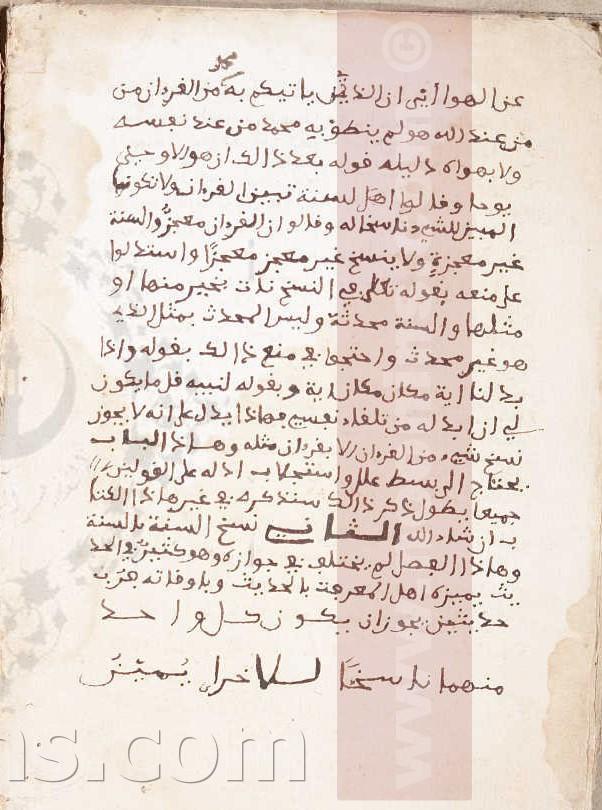 محمد
عن الهوا أي ان الذي ياتيكم به من القرءان من
من عند الله هو لم ينطق به محمد من عند نفسه
ولا بهواه دليله قوله بعد ذالك ان هو الا وحي
يوحا وقالوا اهل السنة تبين القرءان ولا تكون
المبين للشيء ناسخا له وقالوا ان القرءان معجز والسنة
غير معجزة ولا ينسخ غير معجز معجزا واستدلوا
على منعه بقوله تعلى في النسخ نات بخير منها او
مثلها والسنة محدثة وليس المحدث بمثل الذي
هو غير محدث واحتجوا في منع ذالك بقوله واذا
بدلنا اية مكان مكان اية وبقوله لنبيه قل ما يكون
لي ان ابدله من تلقاء نفسي فهاذا يدل على انه لا يجوز
نسخ شيء من القرءان الا بقرءان مثله وهاذا الباب
يحتاج الى بسط علل واستجلاب ادلة على القولين
جميعا يطول ذكر ذالك سنذكره في غير هاذا الكتا
ب ان شاء الله الثاني نسخ السنة بالسنة
وهاذا الفصل لم يختلف في جوازه وهو كثير في الحد
يث يميزه اهل المعرفة بالحديث وباوقاته فرب
حديثين يجوز ان يكون كل واحد
منهما ناسخا للاخر اي يميز
ns.com
www.